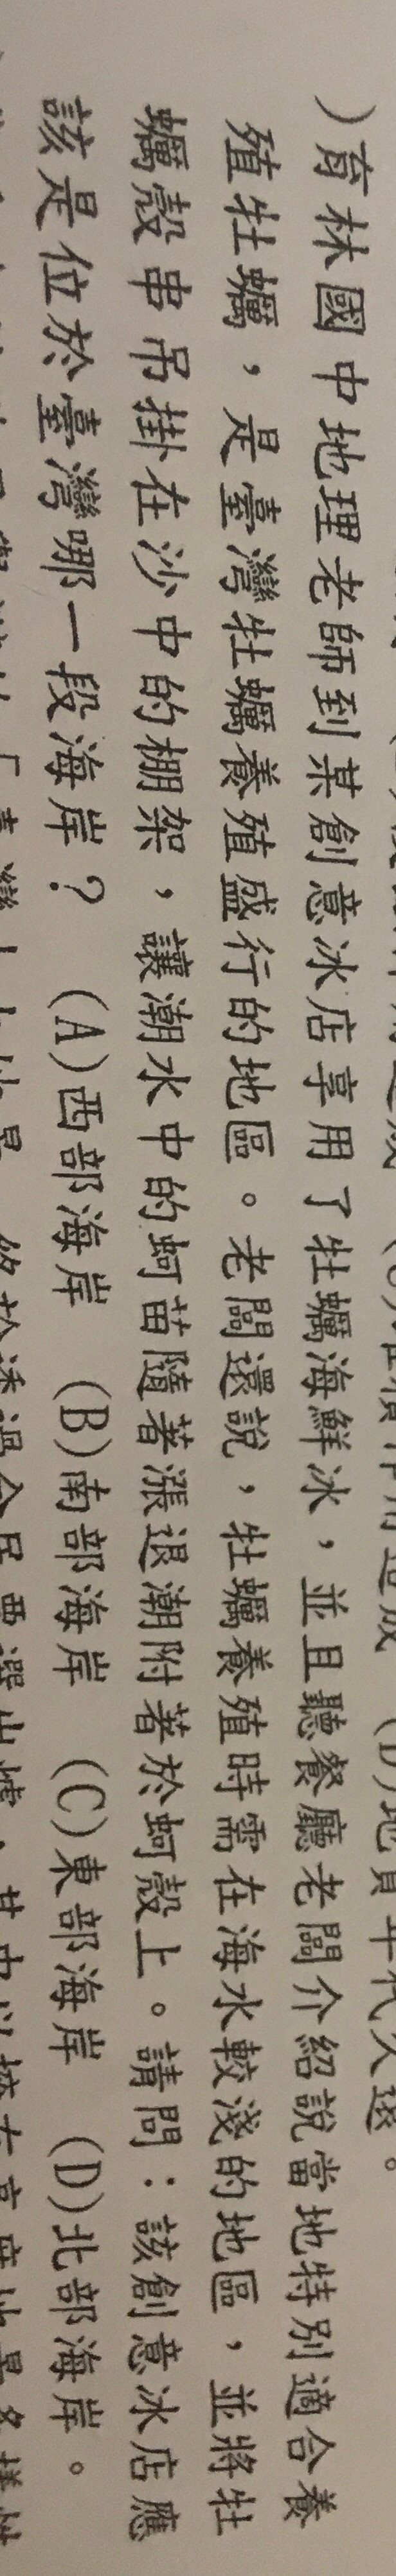 (D)地質年代久遠。
)育林國中地理老師到某創意冰店享用了牡蠣海鮮冰，並且聽餐廳老闆介紹說當地特別適合養
殖牡蠣，是臺灣牡蠣養殖盛行的地區。老闆還說，牡蠣養殖時需在海水較淺的地區，並將牡
蠣殼串吊掛在沙中的棚架，讓潮水中的蚵苗隨著漲退潮附著於蚵殼上。請問：該創意冰店應
該是位於臺灣哪一段海岸？ (A)西部海岸 (B)南部海岸 (C)東部海岸 (D)北部海岸。